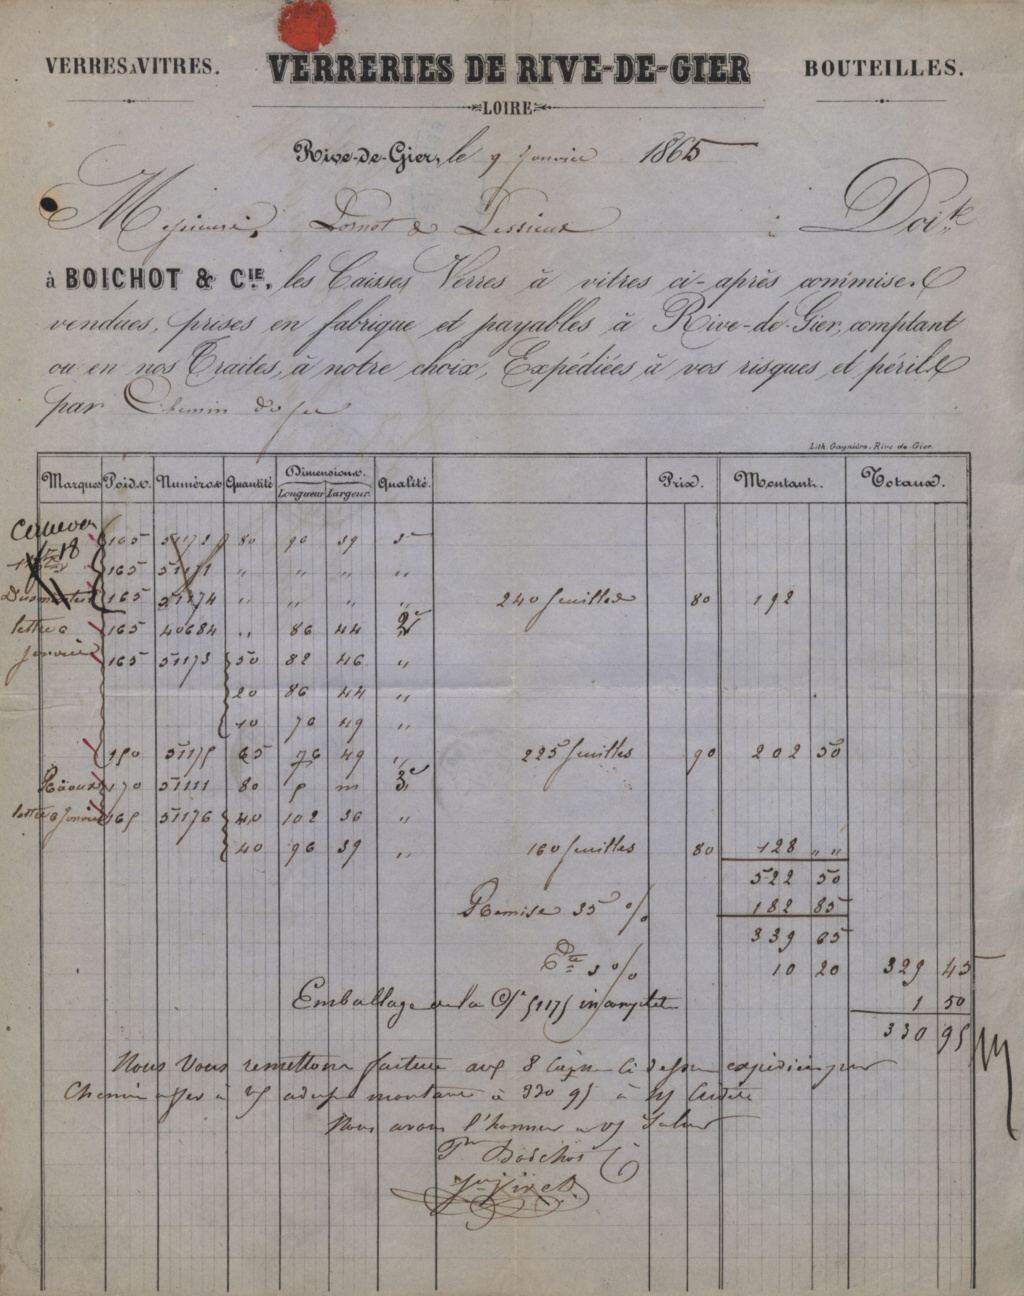 VERRES A VITRES. VERRERIES DE RIVE-DE-GIER BOUTEILLES.
LOIRE
Rive-de-Gier, le 9 Janvier 1865
Messieurs, & Lessieux Doivt
à BOICHOT & CIE., les Caisses Verres à vitres ci-après commises &
vendues, prises en fabrique et payables à Rive-de-Gier, comptant
ou en nos Traites, à notre choix, Expédiées à vos risques et périls
par Chemin de fer
Lith. Gaynière. Rive de Gier.
Marques Poids. Numéros Quantité Dimensions. Qualité. Prix. Montant. Totaux.
Longueur Largeur
165 51172 80 90 39 3e
165 51171 " " " "
165 51174 " " " " 240 feuilles 80 192
lettre 6 165 40684 " 86 44 2e
Janvier 165 51173 50 82 46 "
20 86 44 "
10 70 49 "
150 51175 65 76 49 " 225 feuilles 90 202 50
170 51111 80 p m 3e
lettre 6 Janvier 165 51176 40 102 36 "
40 96 39 " 160 feuilles 80 128 " "
522 50
Remise 35 % 182 85
339 65
Cpte 3 % 10 20 329 45
Emballage de la Cse 51175 1 50
330 95
Nous Vous remettons facture aux 8 Caisses Ci dessus expédiées par
Chemin de fer à montant à 330 95 à
Nous avons l'honneur de vs Saluer
Pr Boichot &